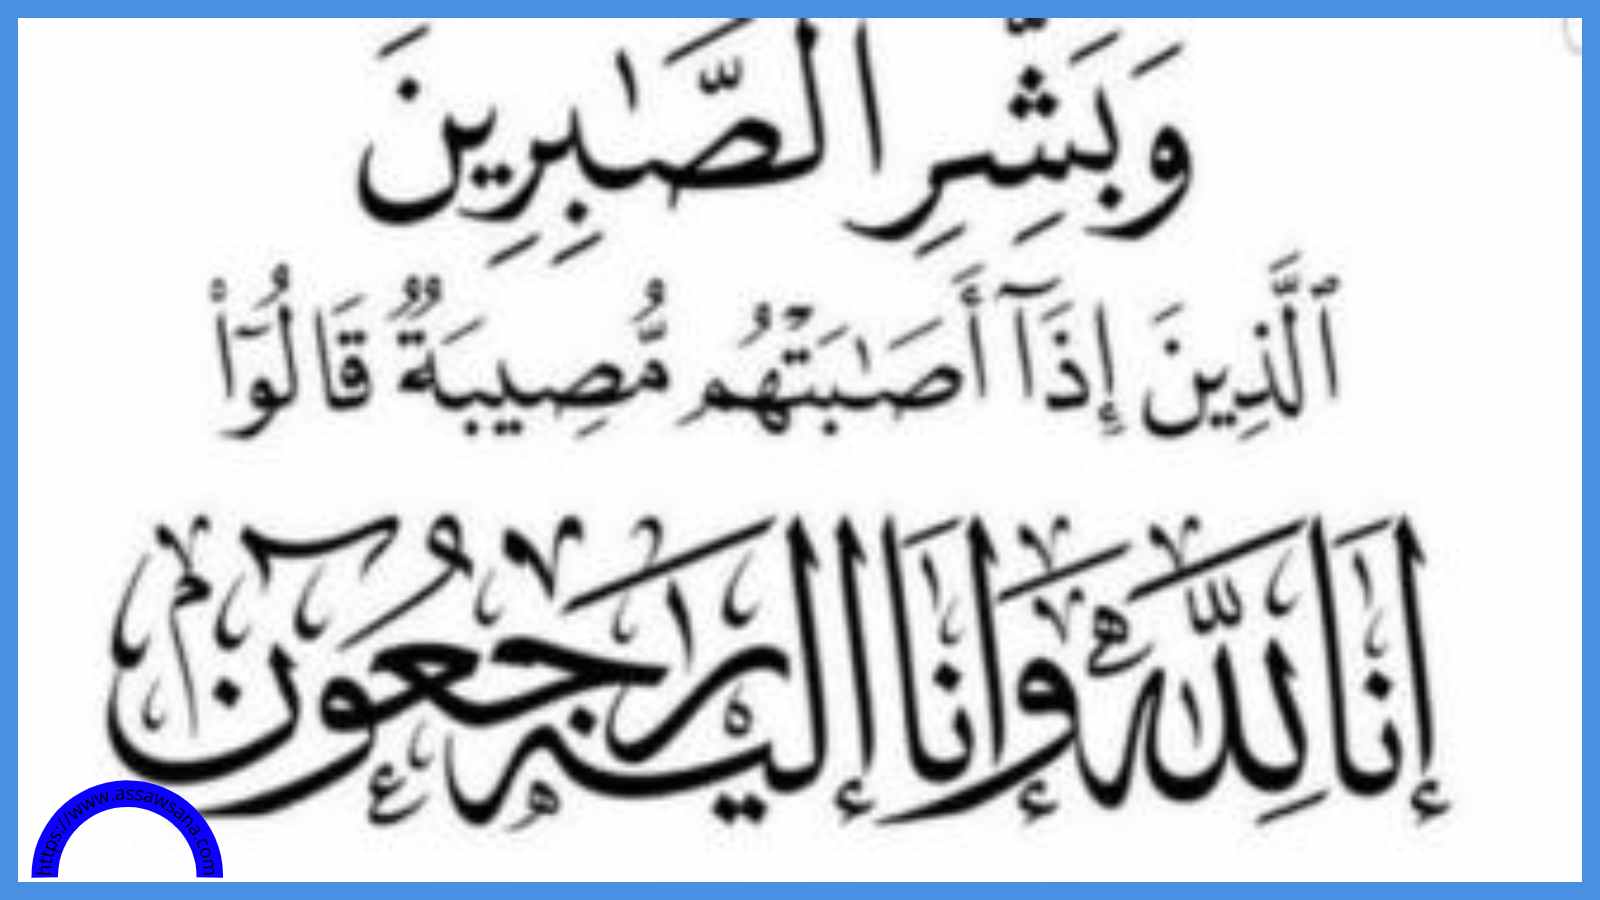 وَبَشِّرِ الصَّٰبِرِينَ
ٱلَّذِينَ إِذَآ أَصَٰبَتْهُم مُّصِيبَةٌ قَالُوٓا۟
إِنَّا لِلَّهِ وَإِنَّا إِلَيْهِ رَاجِعُونَ
https://www.assawsana.com